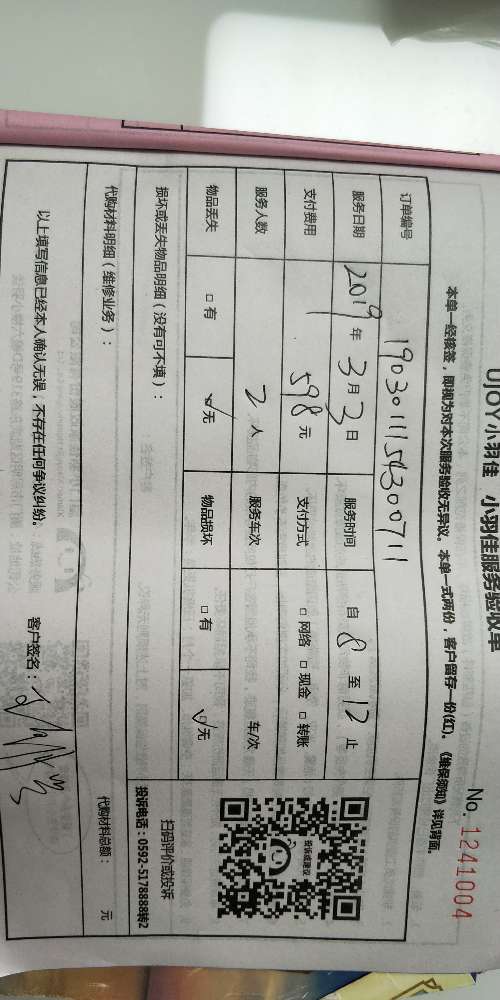 UJOY小羽佳 小羽佳服务验收单
No. 1241004
本单一经核签，即视为对本次服务验收无异议。本单一式两份，客户留存一份(红)。《维保须知》详见背面。
订单编号 19030111154300711
服务日期 2019 年 3 月 3 日 服务时间 自 8 至 12 止
支付费用 598 元 支付方式 □ 网络 □ 现金 □ 转账
服务人数 2 人 服务车次 车/次
物品丢失 □ 有 ☑ 无 物品损坏 □ 有 ☑ 无
投诉或建议
扫码评价或投诉
投诉电话：0592-5178888转2
损坏或丢失物品明细（没有可不填）：
代购材料明细（维修业务）：
代购材料总额： 元
以上填写信息已经本人确认无误，不存在任何争议纠纷。 客户签名：